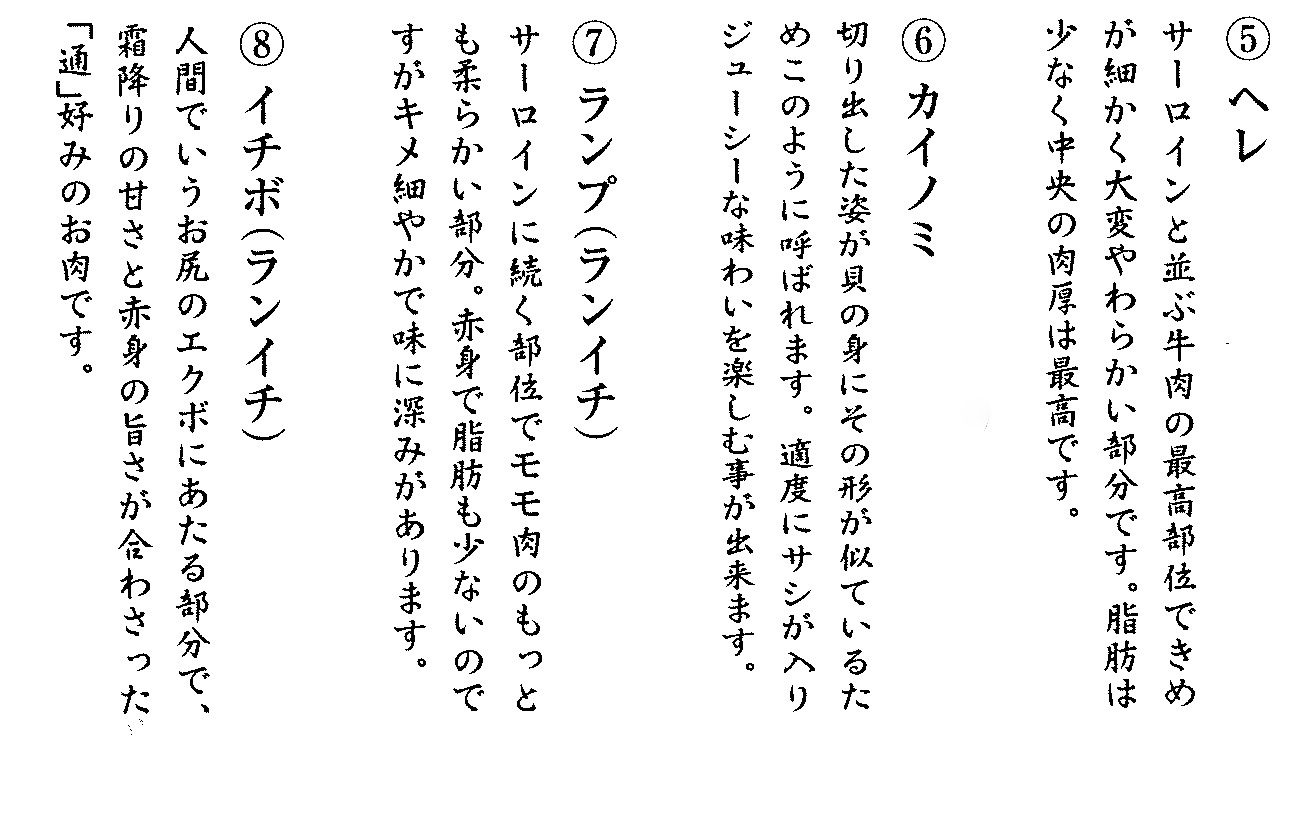 ⑤ ヘレ
サーロインと並ぶ牛肉の最高部位できめ
が細かく大変やわらかい部分です。脂肪は
少なく中央の肉厚は最高です。
⑥ カイノミ
切り出した姿が貝の身にその形が似ているた
めこのように呼ばれます。適度にサシが入り
ジューシーな味わいを楽しむ事が出来ます。
⑦ ランプ(ランイチ)
サーロインに続く部位でモモ肉のもっと
も柔らかい部分。赤身で脂肪も少ないので
すがキメ細やかで味に深みがあります。
⑧ イチボ(ランイチ)
人間でいうお尻のエクボにあたる部分で、
霜降りの甘さと赤身の旨さが合わさった
「通」好みのお肉です。